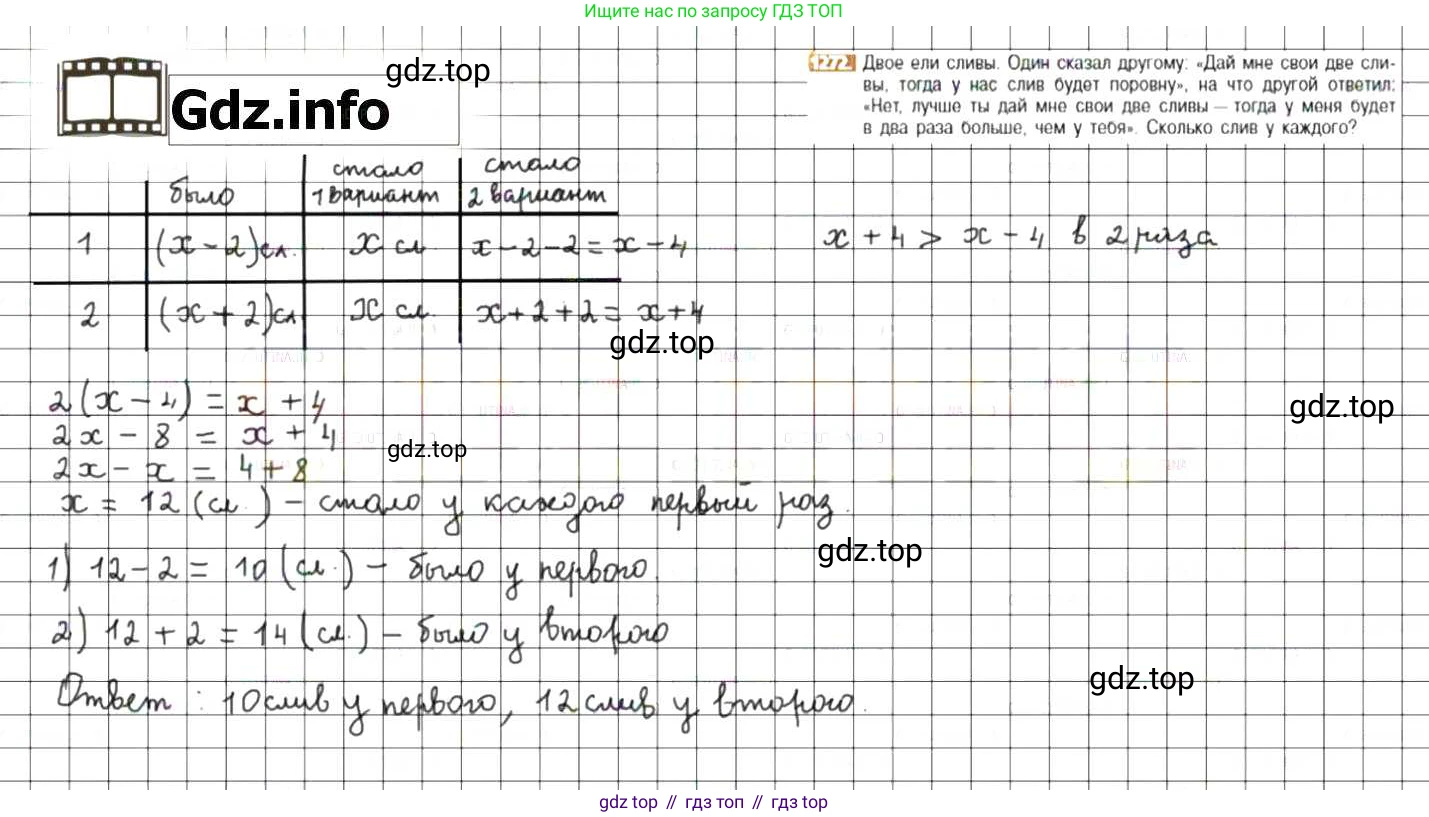 Ищите нас по запросу ГДЗ ТОП
gdz.top
Gdz.info
1272 Двое ели сливы. Один сказал другому: «Дай мне свои две сли-
вы, тогда у нас слив будет поровну», на что другой ответил:
«Нет, лучше ты дай мне свои две сливы — тогда у меня будет
в два раза больше, чем у тебя». Сколько слив у каждого?
было стало 1 вариант стало 2 вариант
1 (x - 2) сл. x сл x - 2 - 2 = x - 4
x + 4 > x - 4 в 2 раза
2 (x + 2) сл x сл. x + 2 + 2 = x + 4
gdz.top
2(x - 4) = x + 4
gdz.top
2x - 8 = x + 4
gdz.top
2x - x = 4 + 8
x = 12 (сл.) - стало у каждого первый раз.
gdz.top
1) 12 - 2 = 10 (сл.) - было у первого.
2) 12 + 2 = 14 (сл.) - было у второго
gdz.top
Ответ: 10 слив у первого, 12 слив у второго.
gdz top // гдз топ // gdz top